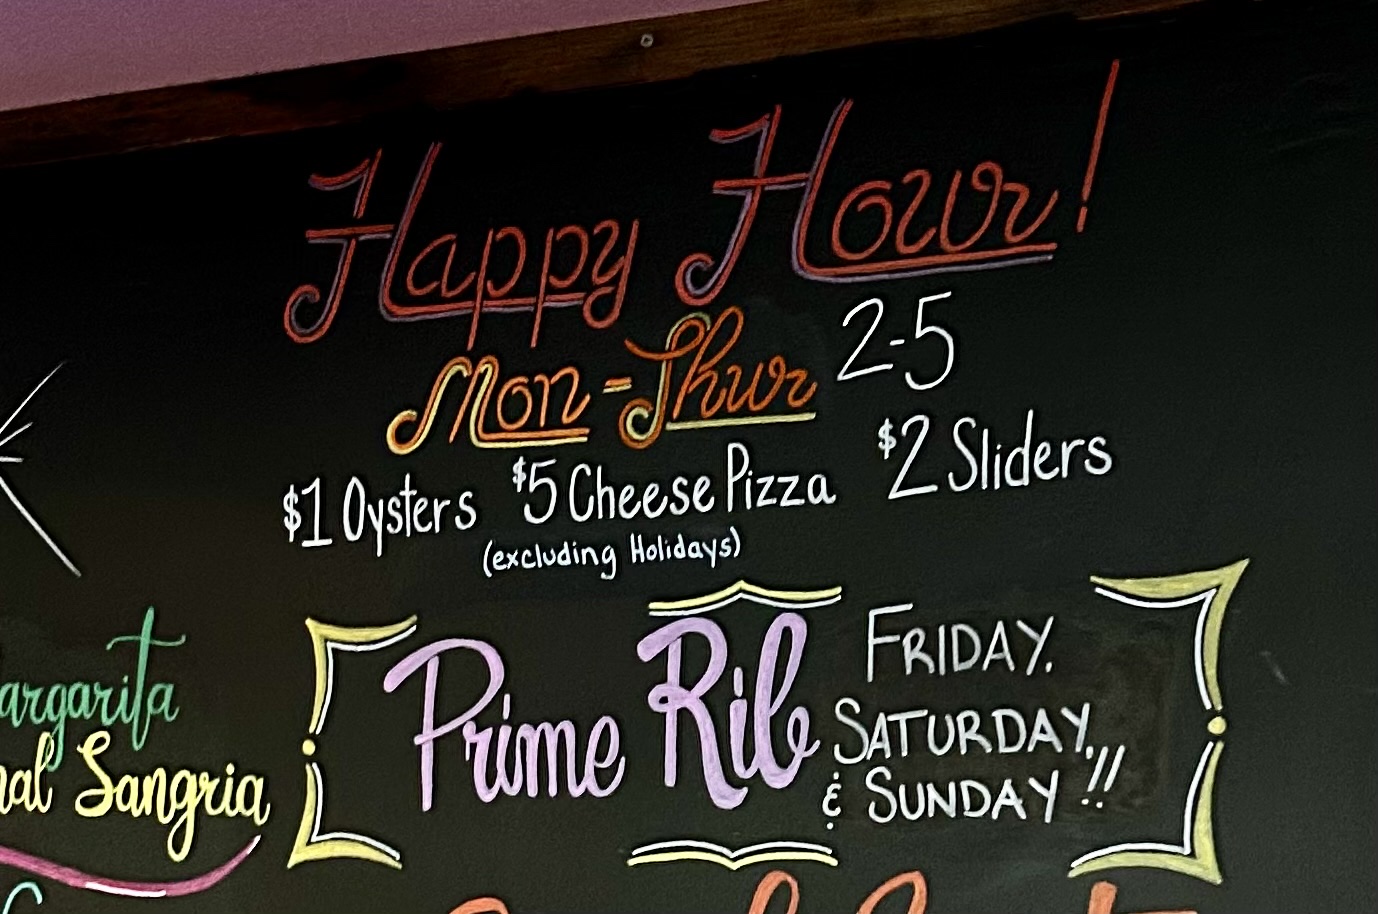 Happy Hour!
Mon-Thur 2-5
$1 Oysters $5 Cheese Pizza $2 Sliders
(excluding Holidays)
Prime Rib FRIDAY,
SATURDAY,
& SUNDAY!!
Sangria